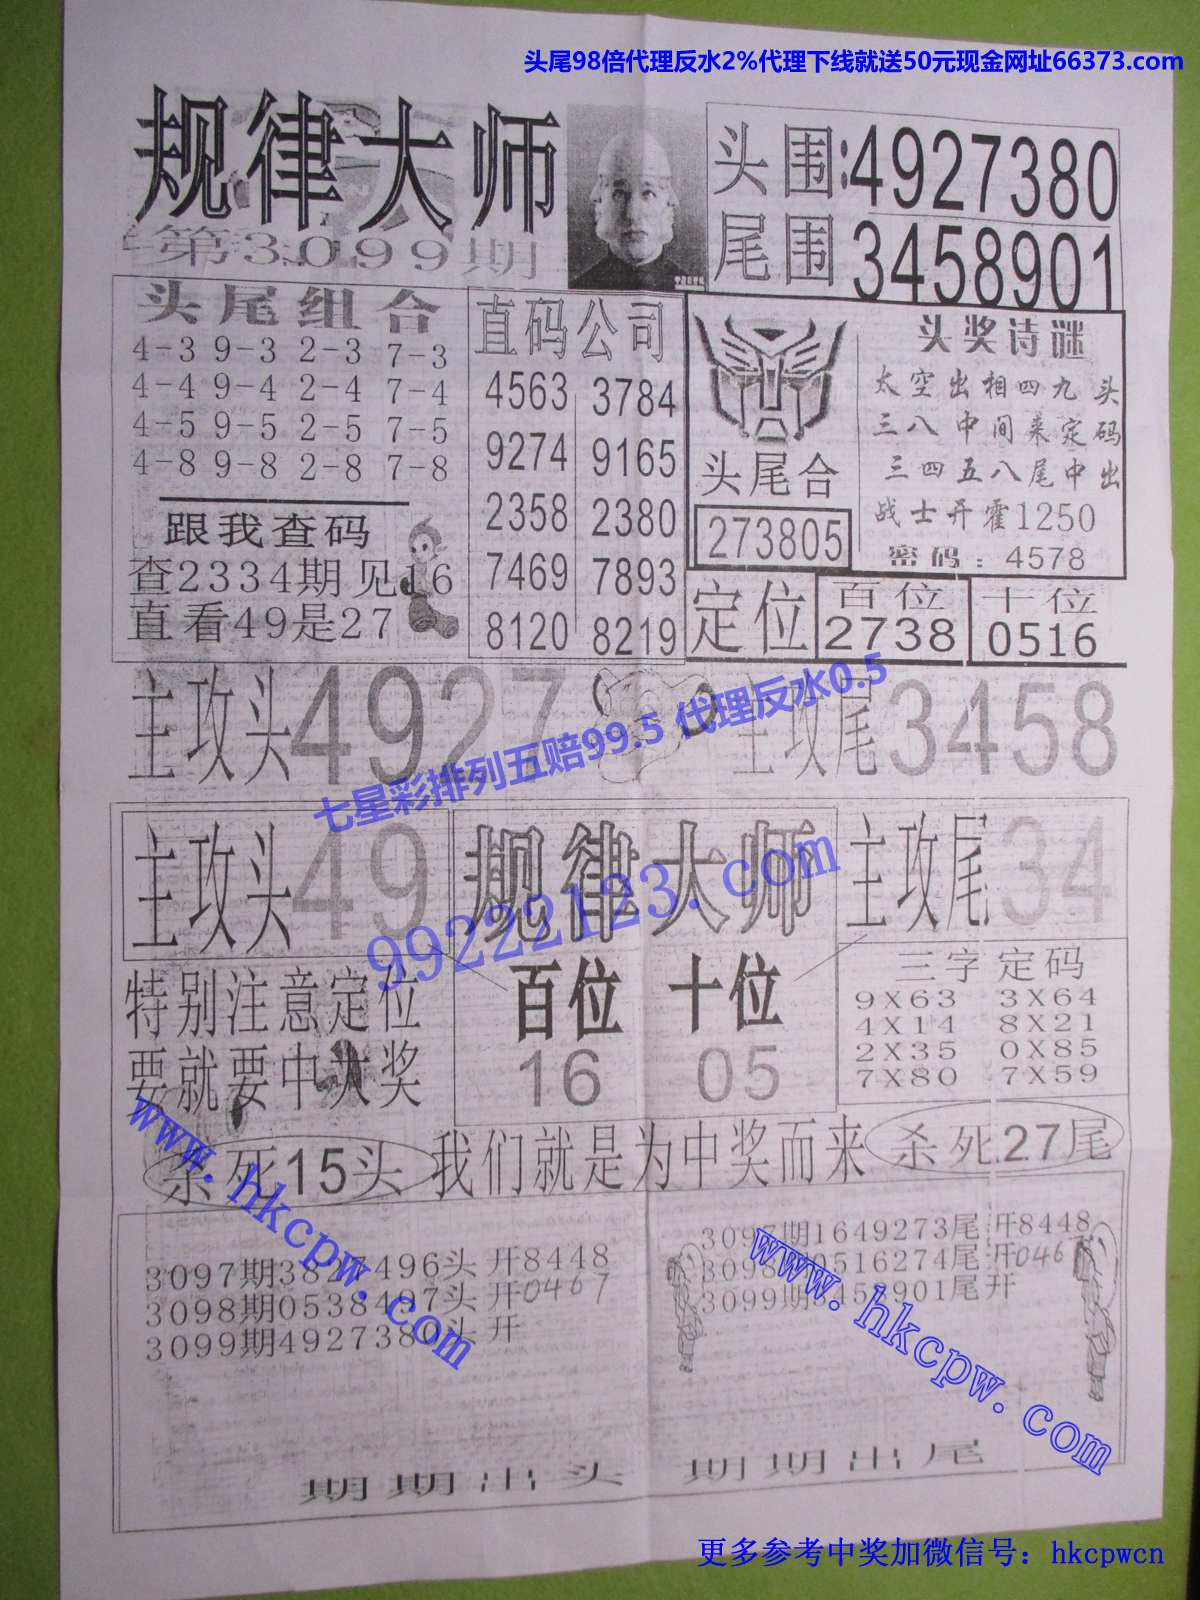 头尾98倍代理反水2%代理下线就送50元现金网址66373.com
规律大师
第3099期
头围:4927380
尾围 3458901
头尾组合
4-3 9-3 2-3 7-3
4-4 9-4 2-4 7-4
4-5 9-5 2-5 7-5
4-8 9-8 2-8 7-8
跟我查码
查2334期见16
直看49是27
直码公司
4563 3784
9274 9165
2358 2380
7469 7893
8120 8219
头尾合
273805
头奖诗谜
太空出相四九头
三八中间来定码
三四五八尾中出
战士开霍1250
密码:4578
定位
百位
2738
十位
0516
主攻头4927
主攻尾3458
七星彩排列五赔99.5 代理反水0.5
99222123.com
主攻头49
规律大师
主攻尾34
百位 十位
16 05
特别注意定位
要就要中大奖
三字定码
9X63 3X64
4X14 8X21
2X35 0X85
7X80 7X59
杀死15头
我们就是为中奖而来
杀死27尾
3097期3827496头开8448
3098期0538497头开0467
3099期4927380头开
3097期1649273尾开8448
3098期0516274尾开046
3099期3458901尾开
www.hkcpw.com
www.hkcpw.com
期期出头 期期出尾
更多参考中奖加微信号：hkcpwcn